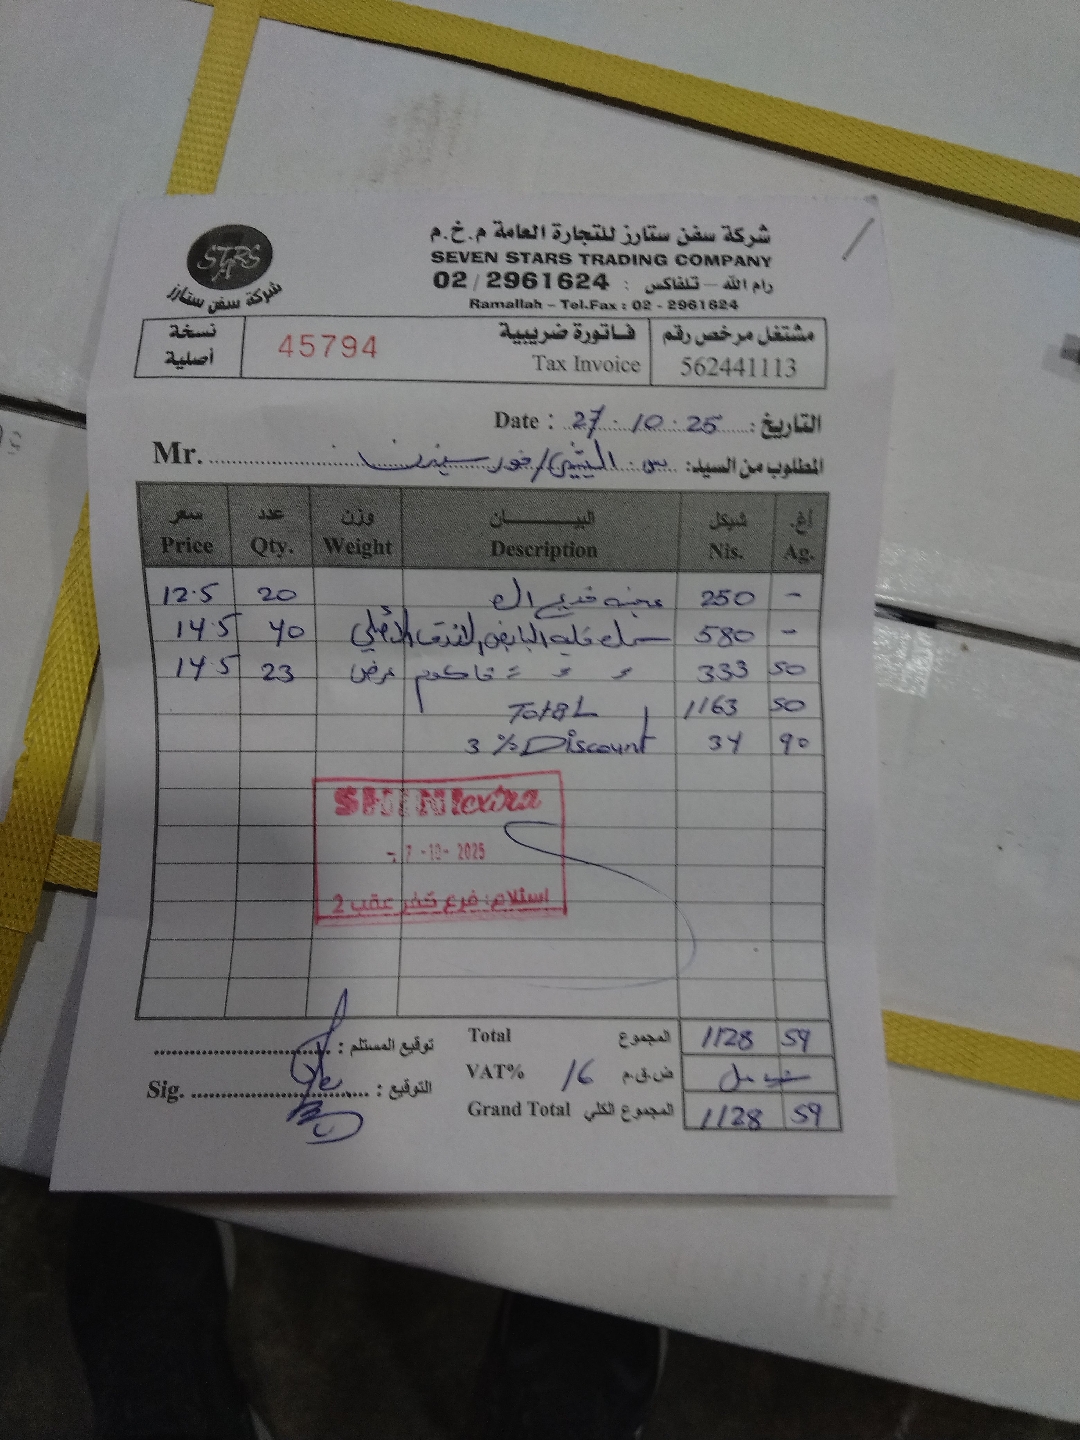 STARS
شركة سفن ستارز
شركة سفن ستارز للتجارة العامة م.خ.م
SEVEN STARS TRADING COMPANY
رام الله - تلفاكس : 02 / 2961624
Ramallah - Tel.Fax : 02 - 2961624
مشتغل مرخص رقم 562441113
فاتورة ضريبية Tax Invoice 45794
نسخة أصلية
التاريخ : Date : 27.10.25
المطلوب من السيد: Mr.
سعر Price عدد Qty. وزن Weight البيــــان Description شيكل Nis. أغ. Ag.
12.5 20 250 -
14.5 40 580 -
14.5 23 333 50
Total 1163 50
3 % Discount 34 90
7 -10- 2025
استلام: فرع كفر عقب 2
توقيع المستلم :
التوقيع : Sig.
Total المجموع 1128 59
VAT% 16 ض.ق.م
Grand Total المجموع الكلي 1128 59